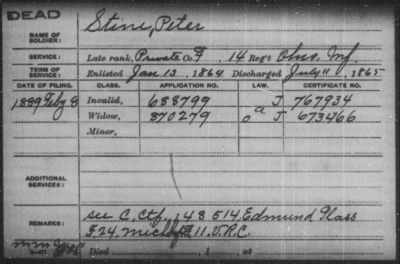 DEAD
Stine, Peter
NAME OF SOLDIER:
SERVICE: Late rank, Private Co. F, 14 Reg't Ohio, Inf.
TERM OF SERVICE: Enlisted Jan 13, 1864 Discharged July 11, 1865
DATE OF FILING. CLASS. APPLICATION NO. LAW. CERTIFICATE NO.
1889 Feby 8 Invalid, 688799 J 767934
Widow, 870279 a J 673466
Minor,
ADDITIONAL SERVICES:
REMARKS: see C. Ctf. 148514, Edmund Glass
F. 24, Mich 11. V.R.C.
Died , 1 , at